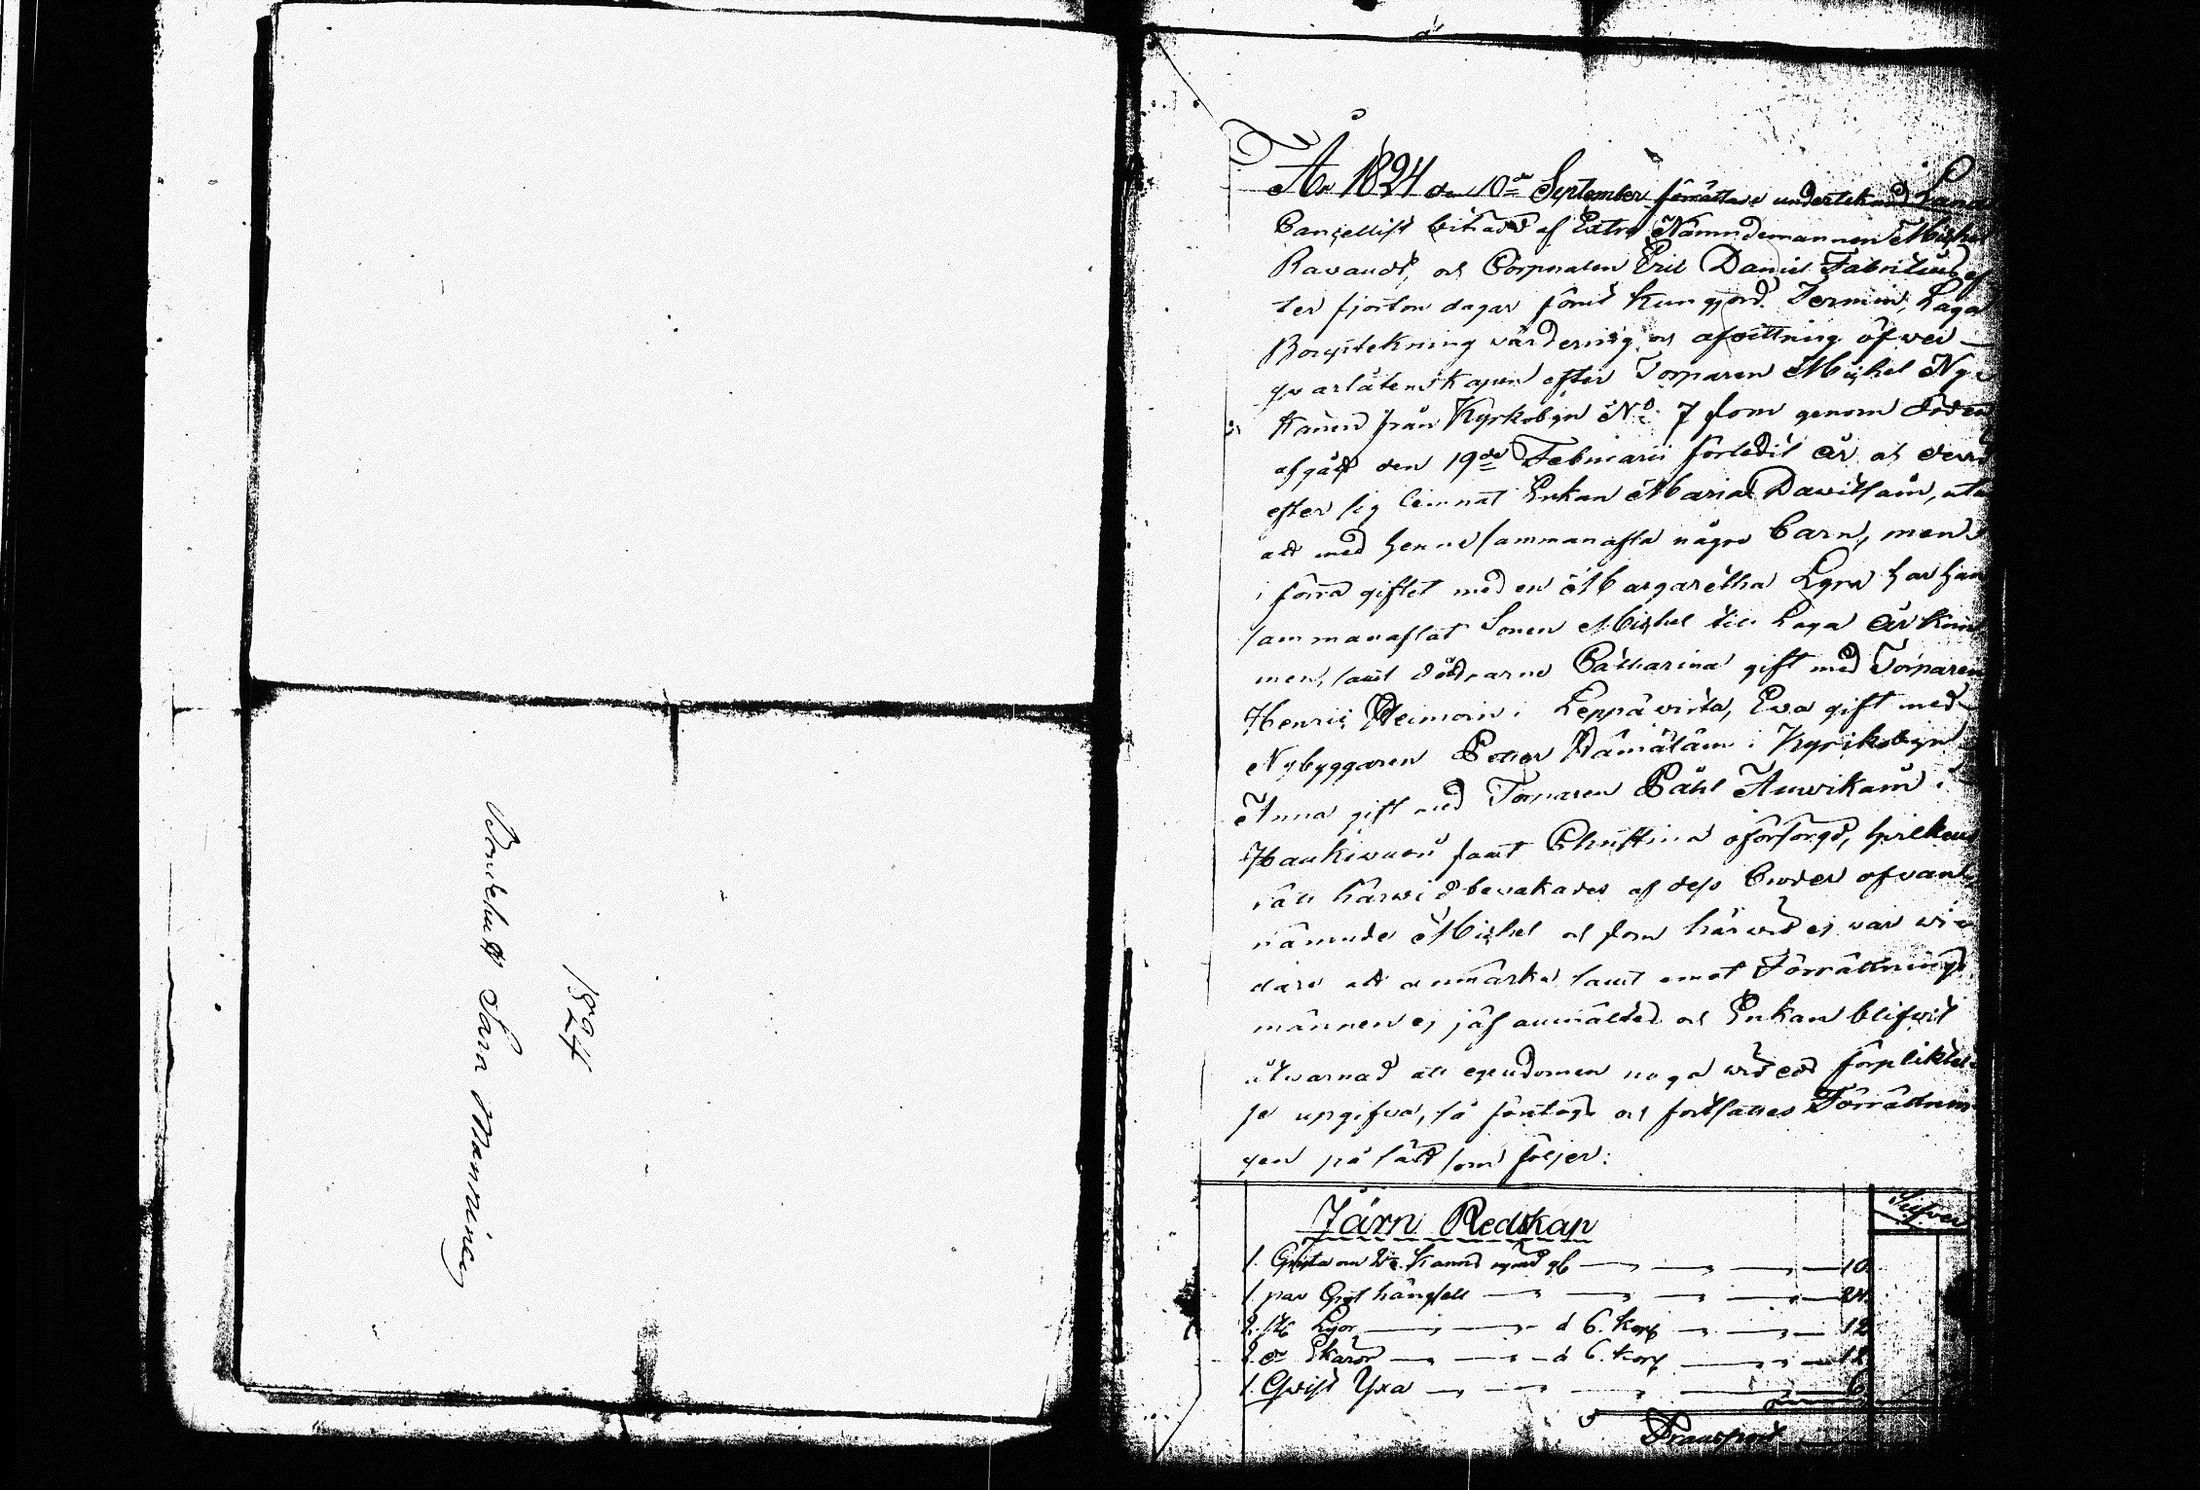 1824
Bondehust. Sara Manninen
År 1824 den 10de September förrättade undertecknad Lands
Cancellist biträdd af Extra Nämndemannen Michel
Ravandr och Corporalen Eric Daniel Fabritius ef
ter fjorton dagar förut kungjord Termin, Laga
Bouptekning värdering och afvittring öfwer
qvarlåtenskapen efter Torparen Michel Ny
känen från Kyrkobyn No 7 som genom döden
afgått den 19de Februarii förledit år och derwid
efter sig lemnat Enkan Maria Davitsain, utan
att med henne sammanafla några Barn, men
i förra giftet med en Margaretha Lyra har han
sammanaflat Sonen Michel till Laga år kom
men, samt döttrarne Catharina gift med Torparen
Henric Reimain i Leppävirta, Eva gift med
Nybyggaren Petter Hämäläin i Kyrikobyn
Anna gift med Torparen Påhl Auvikain i
Haukivuori samt Christina oförsörgd, hvilkens
rätt härwid bevakades af dess Broder ofvan
nämnde Michel och som härwid ej var wi
dare att anmärka samt emot Förrättnings
männen ej jäf anmältes och Enkan blifvit
åtvarnad att egendomen noga wid ed förpliktel
se upgifva, så företogs och fortsattes Förrättnin
gen på sätt som följer:
Järn Redskap
Silfver
1. Gryta om kanna rymd gl 10.
1 par Gryt hängsell 24.
2. st Lyor á 6. kop 12
2. do Skäror á 6. kop 12.
1. Qvist Yxa 6.
Transport